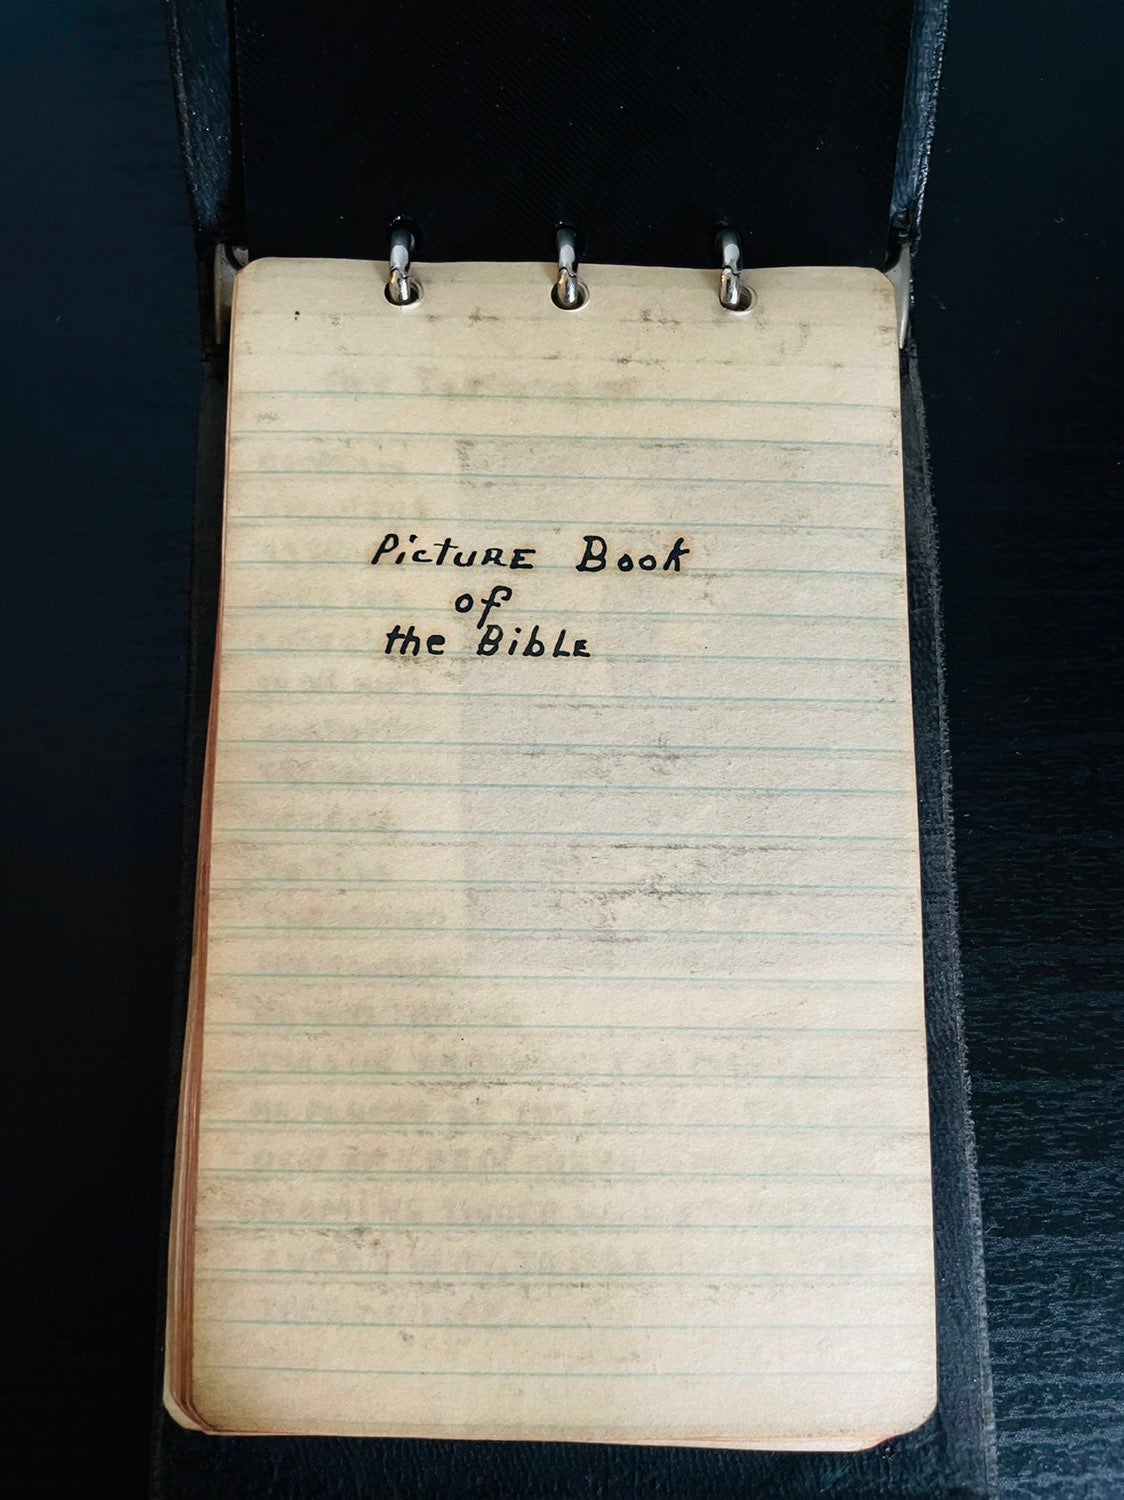 Picture Book
of
the Bible